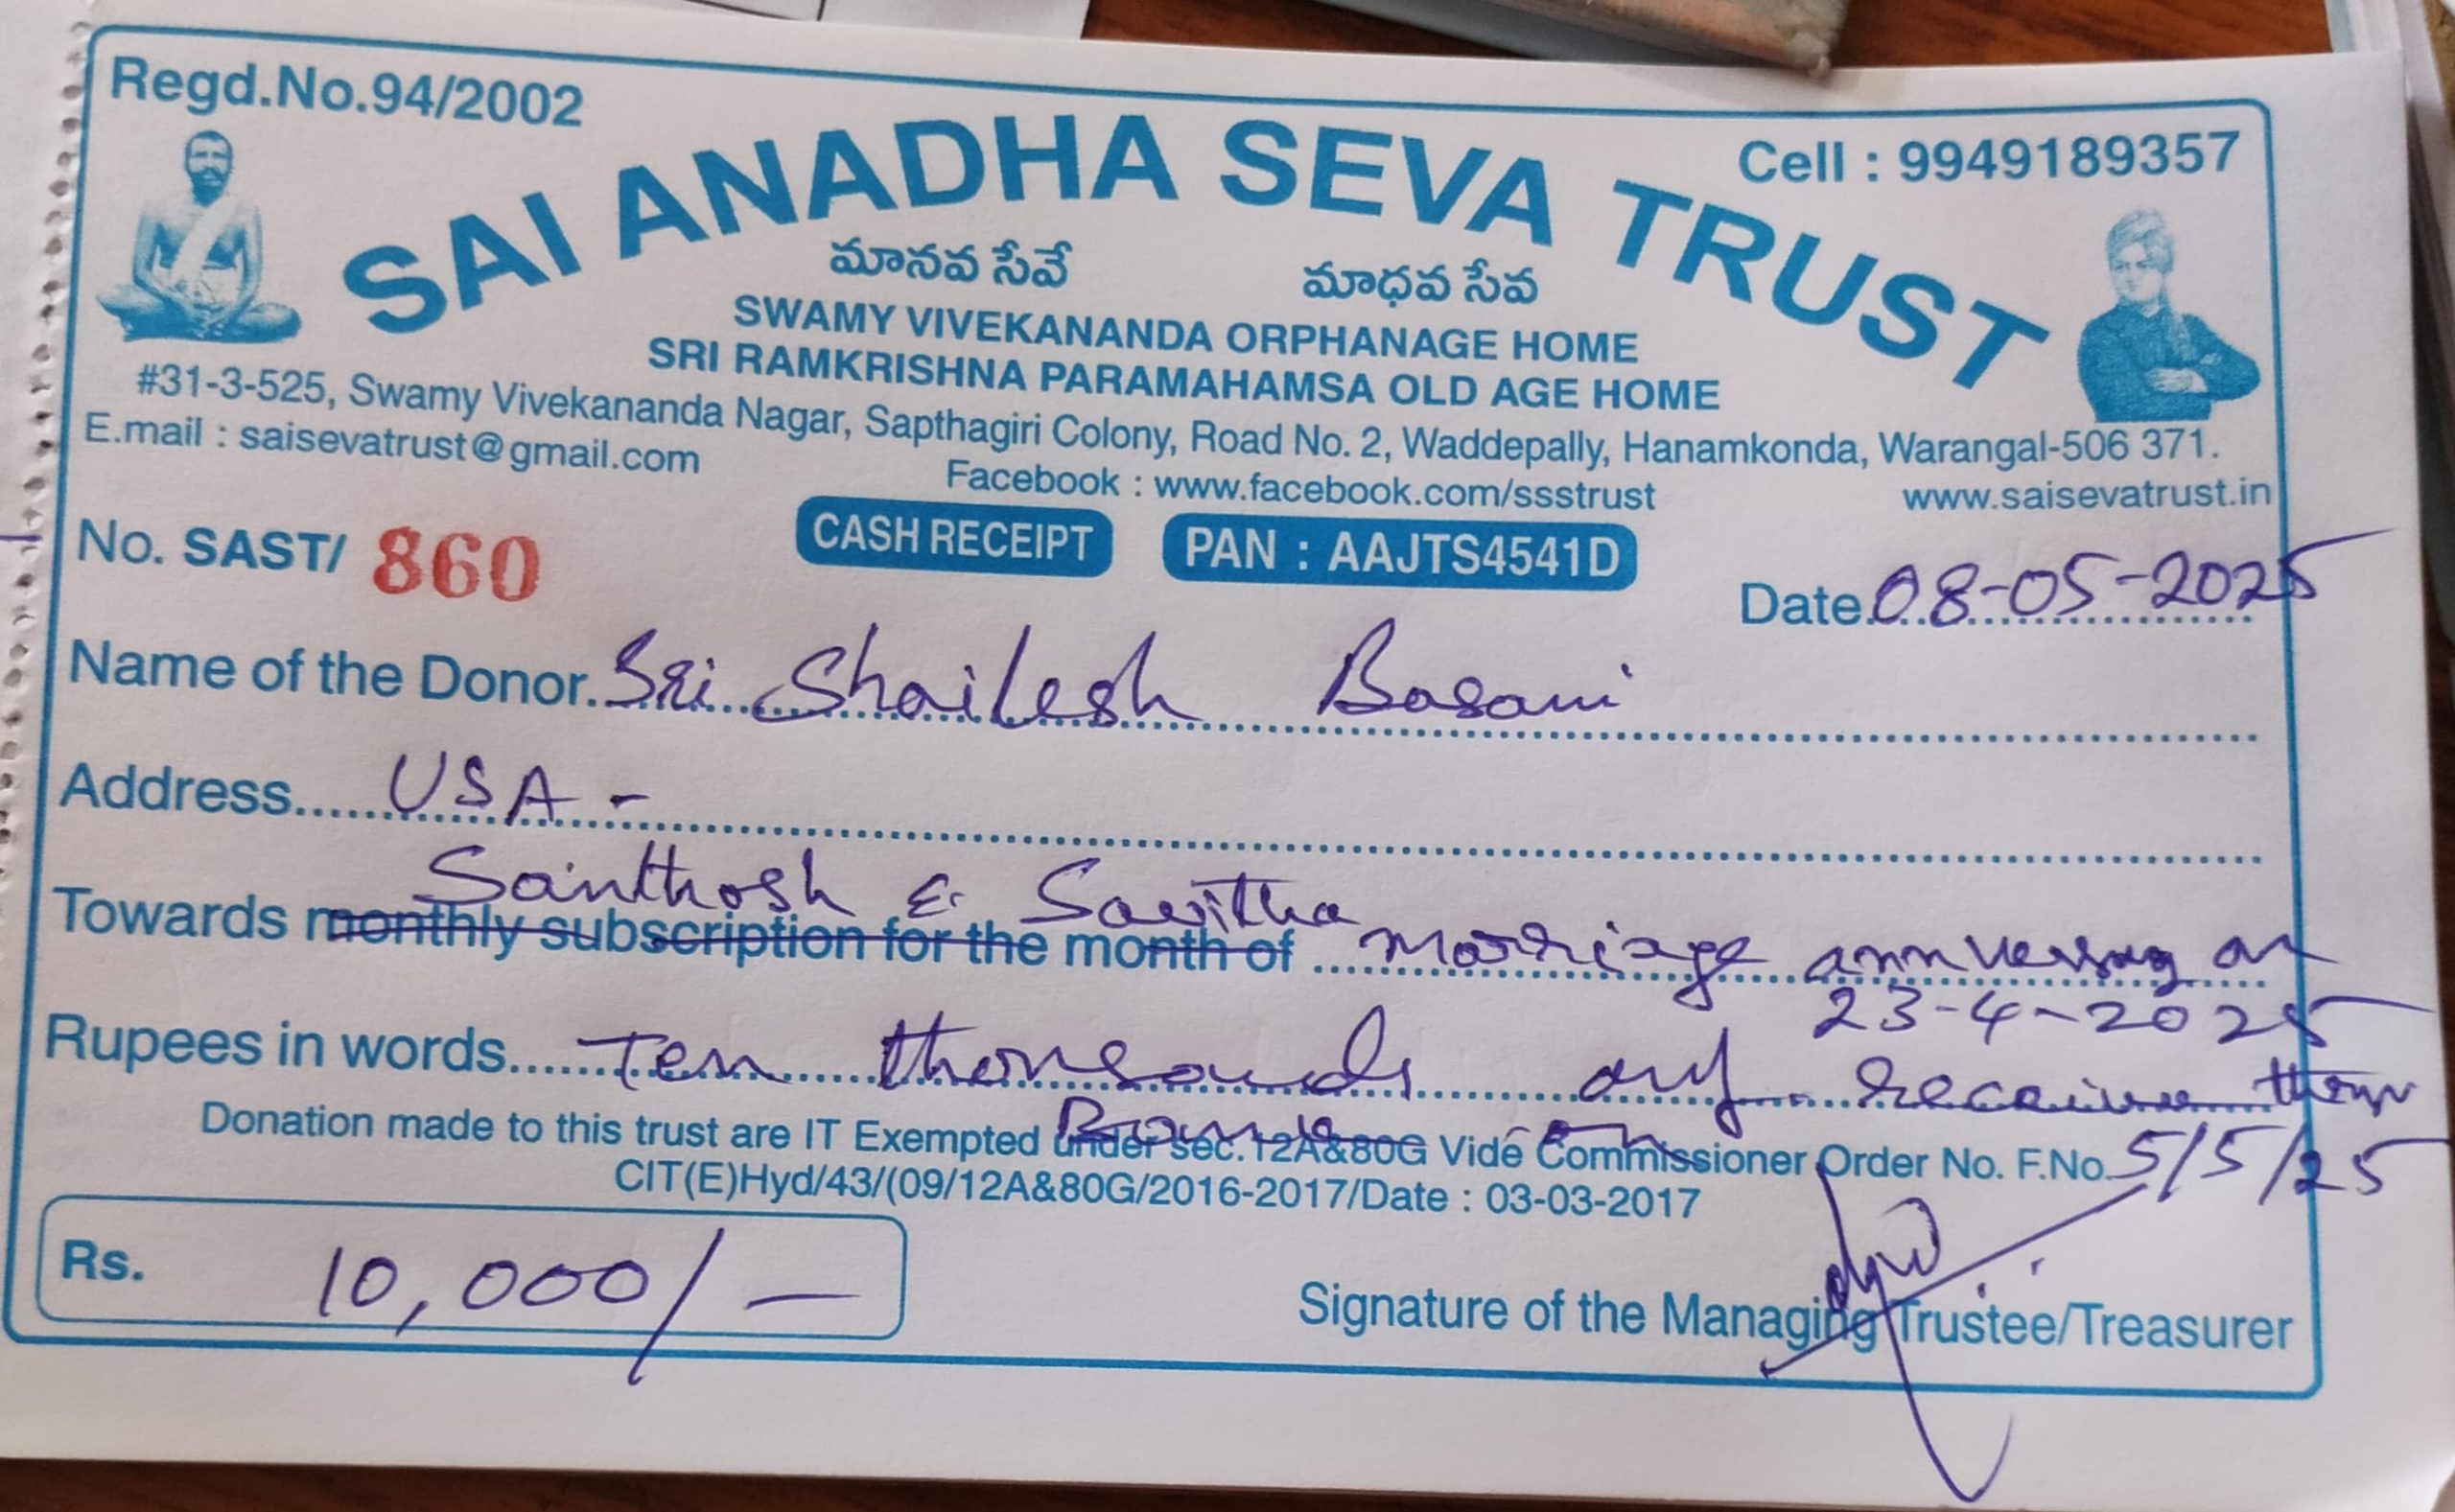 Regd.No.94/2002
Cell : 9949189357
SAI ANADHA SEVA TRUST
మానవ సేవే మాధవ సేవ
SWAMY VIVEKANANDA ORPHANAGE HOME
SRI RAMKRISHNA PARAMAHAMSA OLD AGE HOME
#31-3-525, Swamy Vivekananda Nagar, Sapthagiri Colony, Road No. 2, Waddepally, Hanamkonda, Warangal-506 371.
E.mail : saisevatrust@gmail.com Facebook : www.facebook.com/ssstrust www.saisevatrust.in
No. SAST/ 860 CASH RECEIPT PAN : AAJTS4541D
Date 08-05-2025
Name of the Donor. Sri Shailesh Basani
Address USA -
Santhosh & Savitha
Towards monthly subscription for the month of Marriage anniversary on
23-4-2025
Rupees in words Ten thousands only
Bank on
Donation made to this trust are IT Exempted under sec.12A&80G Vide Commissioner Order No. F.No. 5/5/25
CIT(E)Hyd/43/(09/12A&80G/2016-2017/Date : 03-03-2017
Rs. 10,000/-
Signature of the Managing Trustee/Treasurer